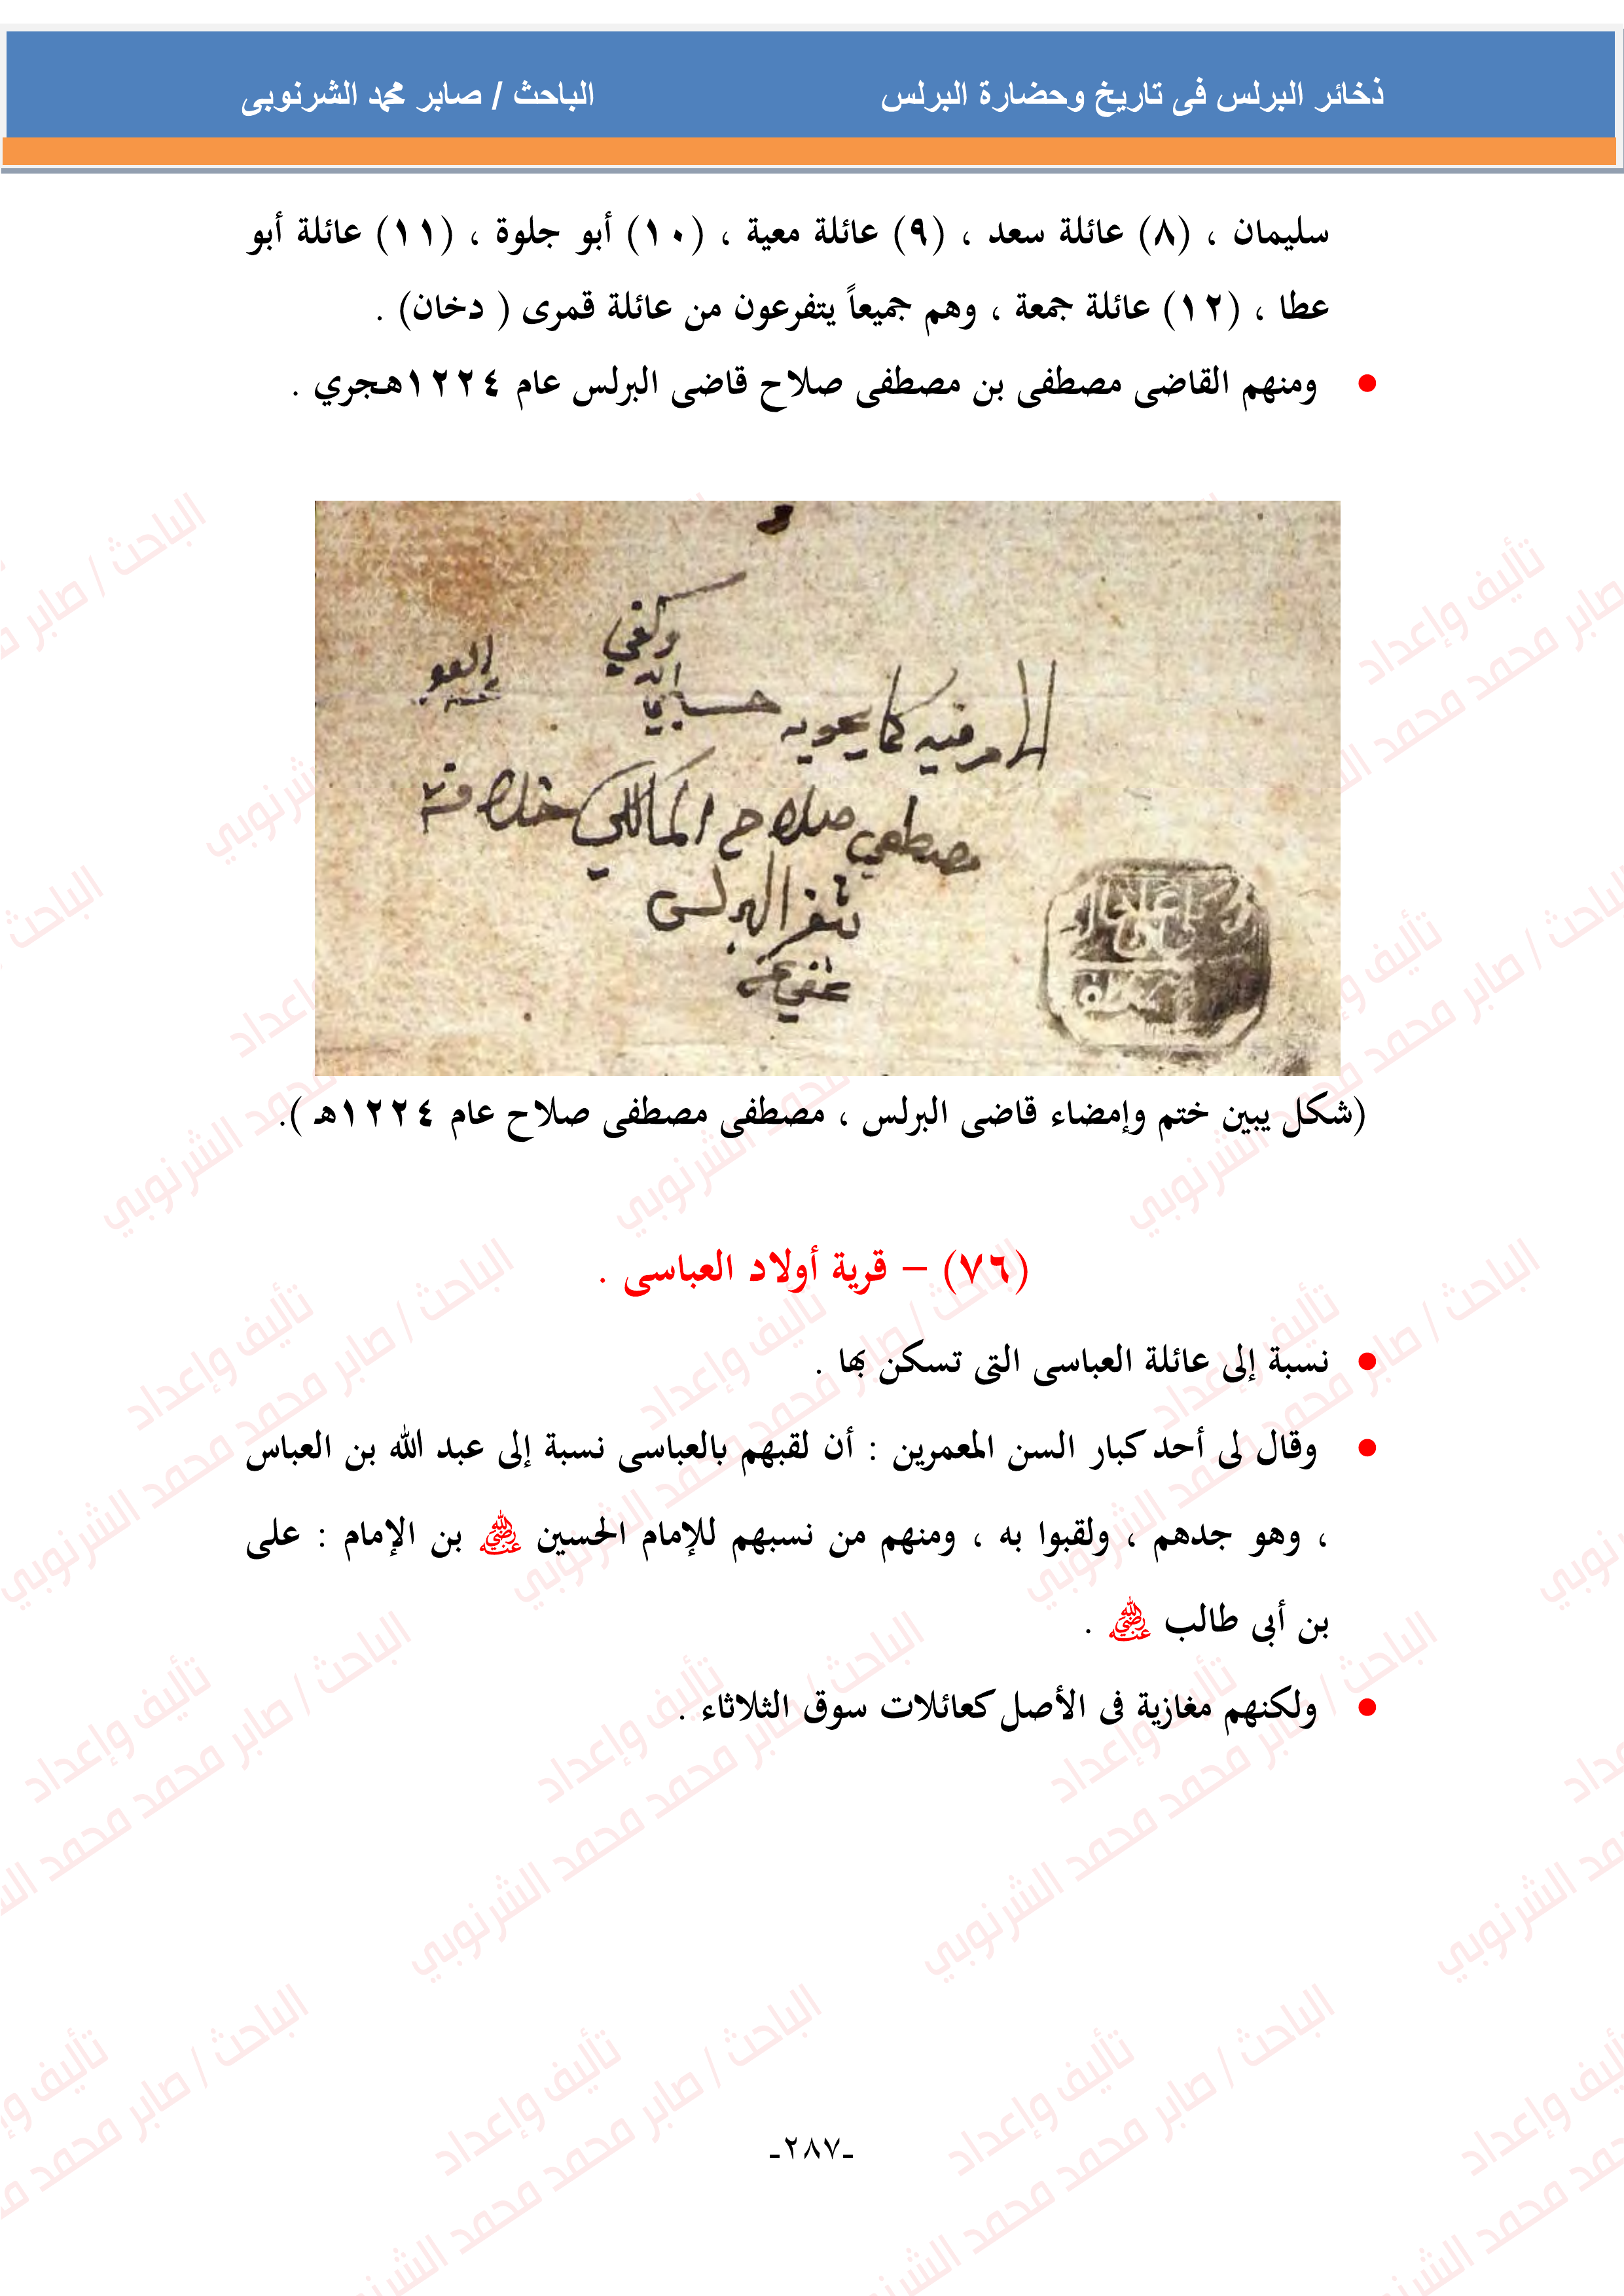 ذخائر البرلس فى تاريخ وحضارة البرلس
الباحث / صابر محمد الشرنوبى
سليمان ، (٨) عائلة سعد ، (٩) عائلة معية ، (١٠) أبو جلوة ، (١١) عائلة أبو
عطا ، (١٢) عائلة جمعة ، وهم جميعاً يتفرعون من عائلة قمرى ( دخان) .
ومنهم القاضى مصطفى بن مصطفى صلاح قاضى البرلس عام ١٢٢٤هـجري .
وكفي
الله
الامر فيه كما يحويه حسبي
مصطفي صلاح المالكي خلافة
بثغر البرلس
عفي عنه
(شكل يبين ختم وإمضاء قاضى البرلس ، مصطفى مصطفى صلاح عام ١٢٢٤هـ ).
(٧٦) – قرية أولاد العباسى .
نسبة إلى عائلة العباسى التى تسكن بها .
وقال لى أحد كبار السن المعمرين : أن لقبهم بالعباسى نسبة إلى عبد الله بن العباس
، وهو جدهم ، ولقبوا به ، ومنهم من نسبهم للإمام الحسين رضي الله عنه بن الإمام : على
بن أبى طالب رضي الله عنه .
ولكنهم مغازية فى الأصل كعائلات سوق الثلاثاء .
-٢٨٧-
تأليف وإعداد
الباحث / صابر محمد محمد الشرنوبي